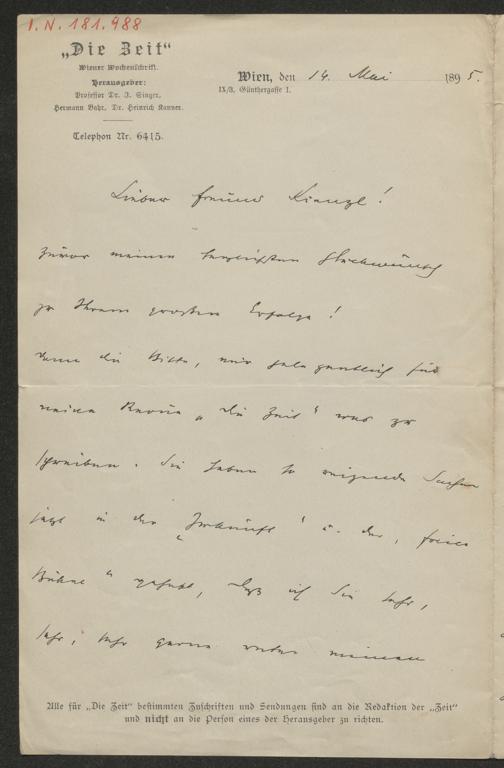 I. N. 181.988
„Die Zeit“
Wiener Wochenschrift.
Herausgeber:
Professor Dr. I. Singer,
Hermann Bahr, Dr. Heinrich Kanner.
Telephon Nr. 6415.
Wien, den 14. Mai 1895.
IX/3, Günthergasse 1.
Lieber Freund Kienzl!
Zuvor meinen herzlichsten Glückwunsch
zu Ihrem grossen Erfolge!
dann die Bitte, mir gelegentlich für
meine Revue „die Zeit“ was zu
schreiben. Sie haben so reizende Sachen
jetzt in der „Zukunft“ u. der „freien
Bühne“ gehabt, daß ich Sie sehr,
sehr, sehr gerne unter meinen
Alle für „Die Zeit“ bestimmten Zuschriften und Sendungen sind an die Redaktion der „Zeit“
und nicht an die Person eines der Herausgeber zu richten.